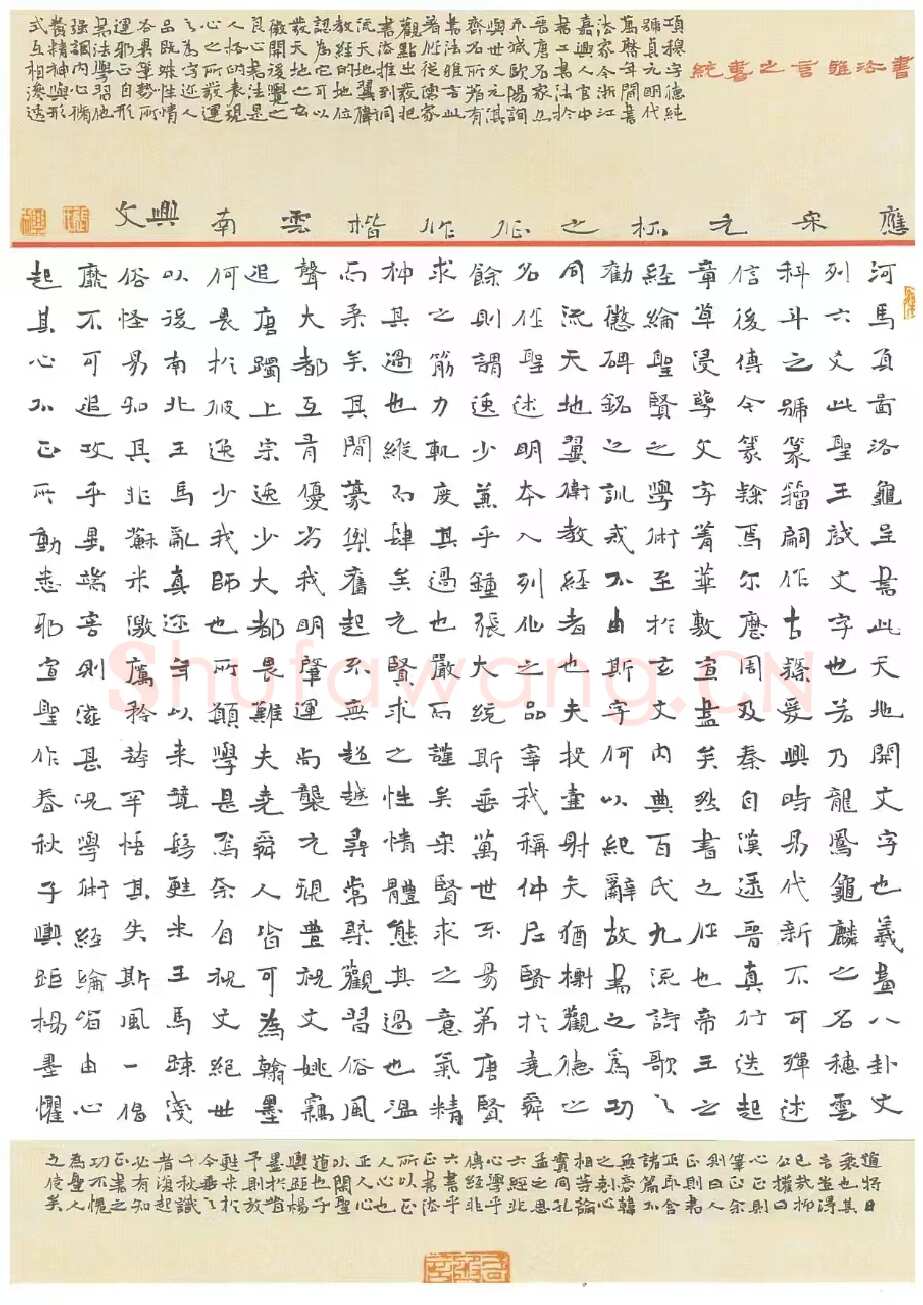 書法雅言之書統
項穆字德純
號貞元明代
萬曆年間書
法家今浙江
嘉興人官中
書工書法於
晉唐名家且
不減歐陽詢
與名父元淇
齊世所指有
書法雅言此
著作從傳家
觀點出發把
書法推到同
流天地翼衛
教經的地位
認為它可以
發天地之玄
徵開後覺之
良心書法是
人格的表現
心之所發運
之為迹人
品既殊性情
各異筆勢所
運邪正自形
書法學習他
強調內心脩
養精神與形
式互相渙透
應宋元杯之征作楷雲南興文
河馬負啚洛龜呈書此天地開文字也羲畫八卦文
列六爻此聖王啟文字也若乃龍鳳龜麟之名穗雲
科斗之號篆籀嗣作古隸爰興時易代新不可殫述
信後傳今篆隸焉尔歷周及秦自漢逮晉真行迭起
章草浸孳文字菁華敷宣盡矣然書之作也帝王之
經綸聖賢之學術至於玄文內典百氏九流詩歌之
勸懲碑銘之訓戒不由斯字何以紀辭故書之為功
同流天地翼衛教經者也夫投壺射矢猶榭觀德之
名作聖述明本入列仙之品宰我稱仲尼賢於堯舜
餘則謂逸少兼乎鍾張大統斯垂萬世不易第唐賢
求之筋力軌度其過也嚴而謹矣宋賢求之意氣精
神其過也縱而肆矣元賢求之性情體態其過也溫
而柔矣其間豪傑奮起不無超越尋常槩觀習俗風
聲大都互有優劣我明肇運尚襲元規豊祝文姚竊
追唐躅上宗逸少大都畏難夫堯舜人皆可為翰墨
何畏於彼逸少我師也所願學是焉奈自祝文絕世
以後南北王馬亂真邇年以來競學甦米王馬疎淺
俗怪易知其非蘇米激厲矜誇罕悟其失斯風一倡
靡不可追攻乎異端害則滋甚況學術經綸皆由心
起其心不正所動悉邪宣聖作春秋子輿距楊墨懼
道將日
衰也其
言豈得
已哉柳
公權曰
心正則
筆正余
則曰人
正則書
正即舍
諸篇不
無商韓
之刻心
相等論
實同孔
孟之思
六經非
心學乎
傳經非
六書乎
正書法
所以正
人心也
正人心
以閑聖
道也子
輿距楊
墨於昔
予則放
甦米於
今垂之
千秋識
者復起
必有知
正書之
功不愧
為聖人
之徒矣
Shufawang.CN